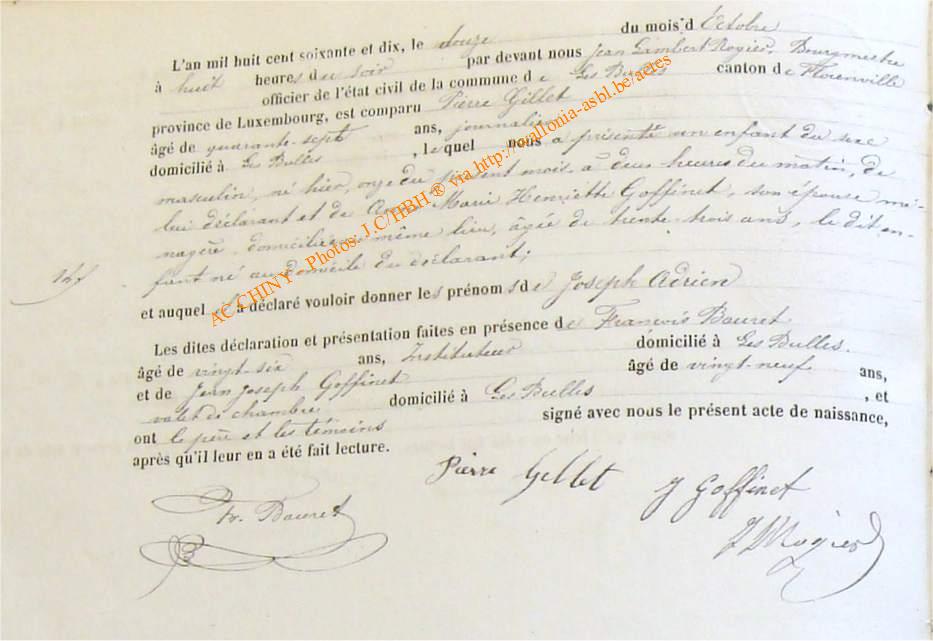 L'an mil huit cent soixante et dix, le douze du mois d'Octobre
à huit heures du soir par devant nous Jean Lambert Rogier, Bourgmestre
officier de l'état civil de la commune de Les Bulles canton de Florenville
province de Luxembourg, est comparu Pierre Gillet
âgé de quarante-sept ans, journalier
domicilié à Les Bulles, lequel nous a présenté un enfant du sexe
masculin, né hier, onze du présent mois, à deux heures du matin, de
lui déclarant et de Anne Marie Henriette Goffinet, son épouse mé-
nagère, domiciliée même lieu, âgée de trente-trois ans, le dit en-
fant né au domicile du déclarant;
et auquel il a déclaré vouloir donner les prénoms de Joseph Adrien
Les dites déclaration et présentation faites en présence de François Bauret
âgé de vingt-six ans, Instituteur domicilié à Les Bulles.
et de Jean Joseph Goffinet âgé de vingt-neuf ans,
valet de chambre domicilié à Les Bulles, et
ont le père et les témoins signé avec nous le présent acte de naissance,
après qu'il leur en a été fait lecture.
Pierre Gellet
J Goffinet
Fr. Bauret
JLRogier
AC CHINY Photos: J.C/HBH ® via http://wallonia-asbl.be/actes